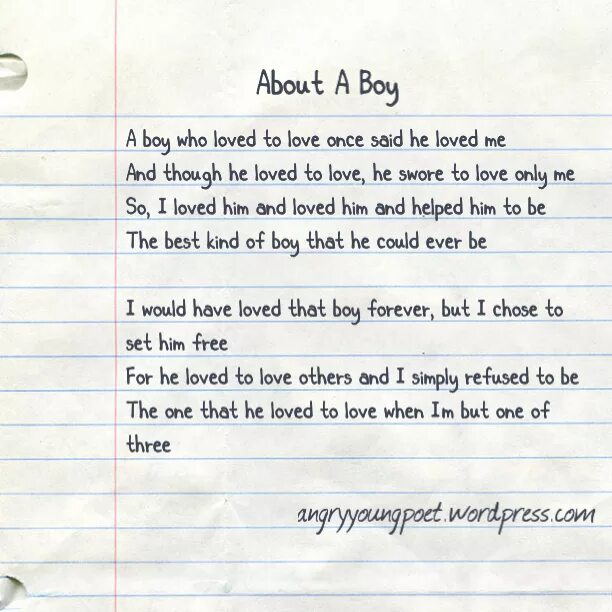 About A Boy
A boy who loved to love once said he loved me
And though he loved to love, he swore to love only me
So, I loved him and loved him and helped him to be
The best kind of boy that he could ever be
I would have loved that boy forever, but I chose to
set him free
For he loved to love others and I simply refused to be
The one that he loved to love when Im but one of
three
angryyoungpoet.wordpress.com